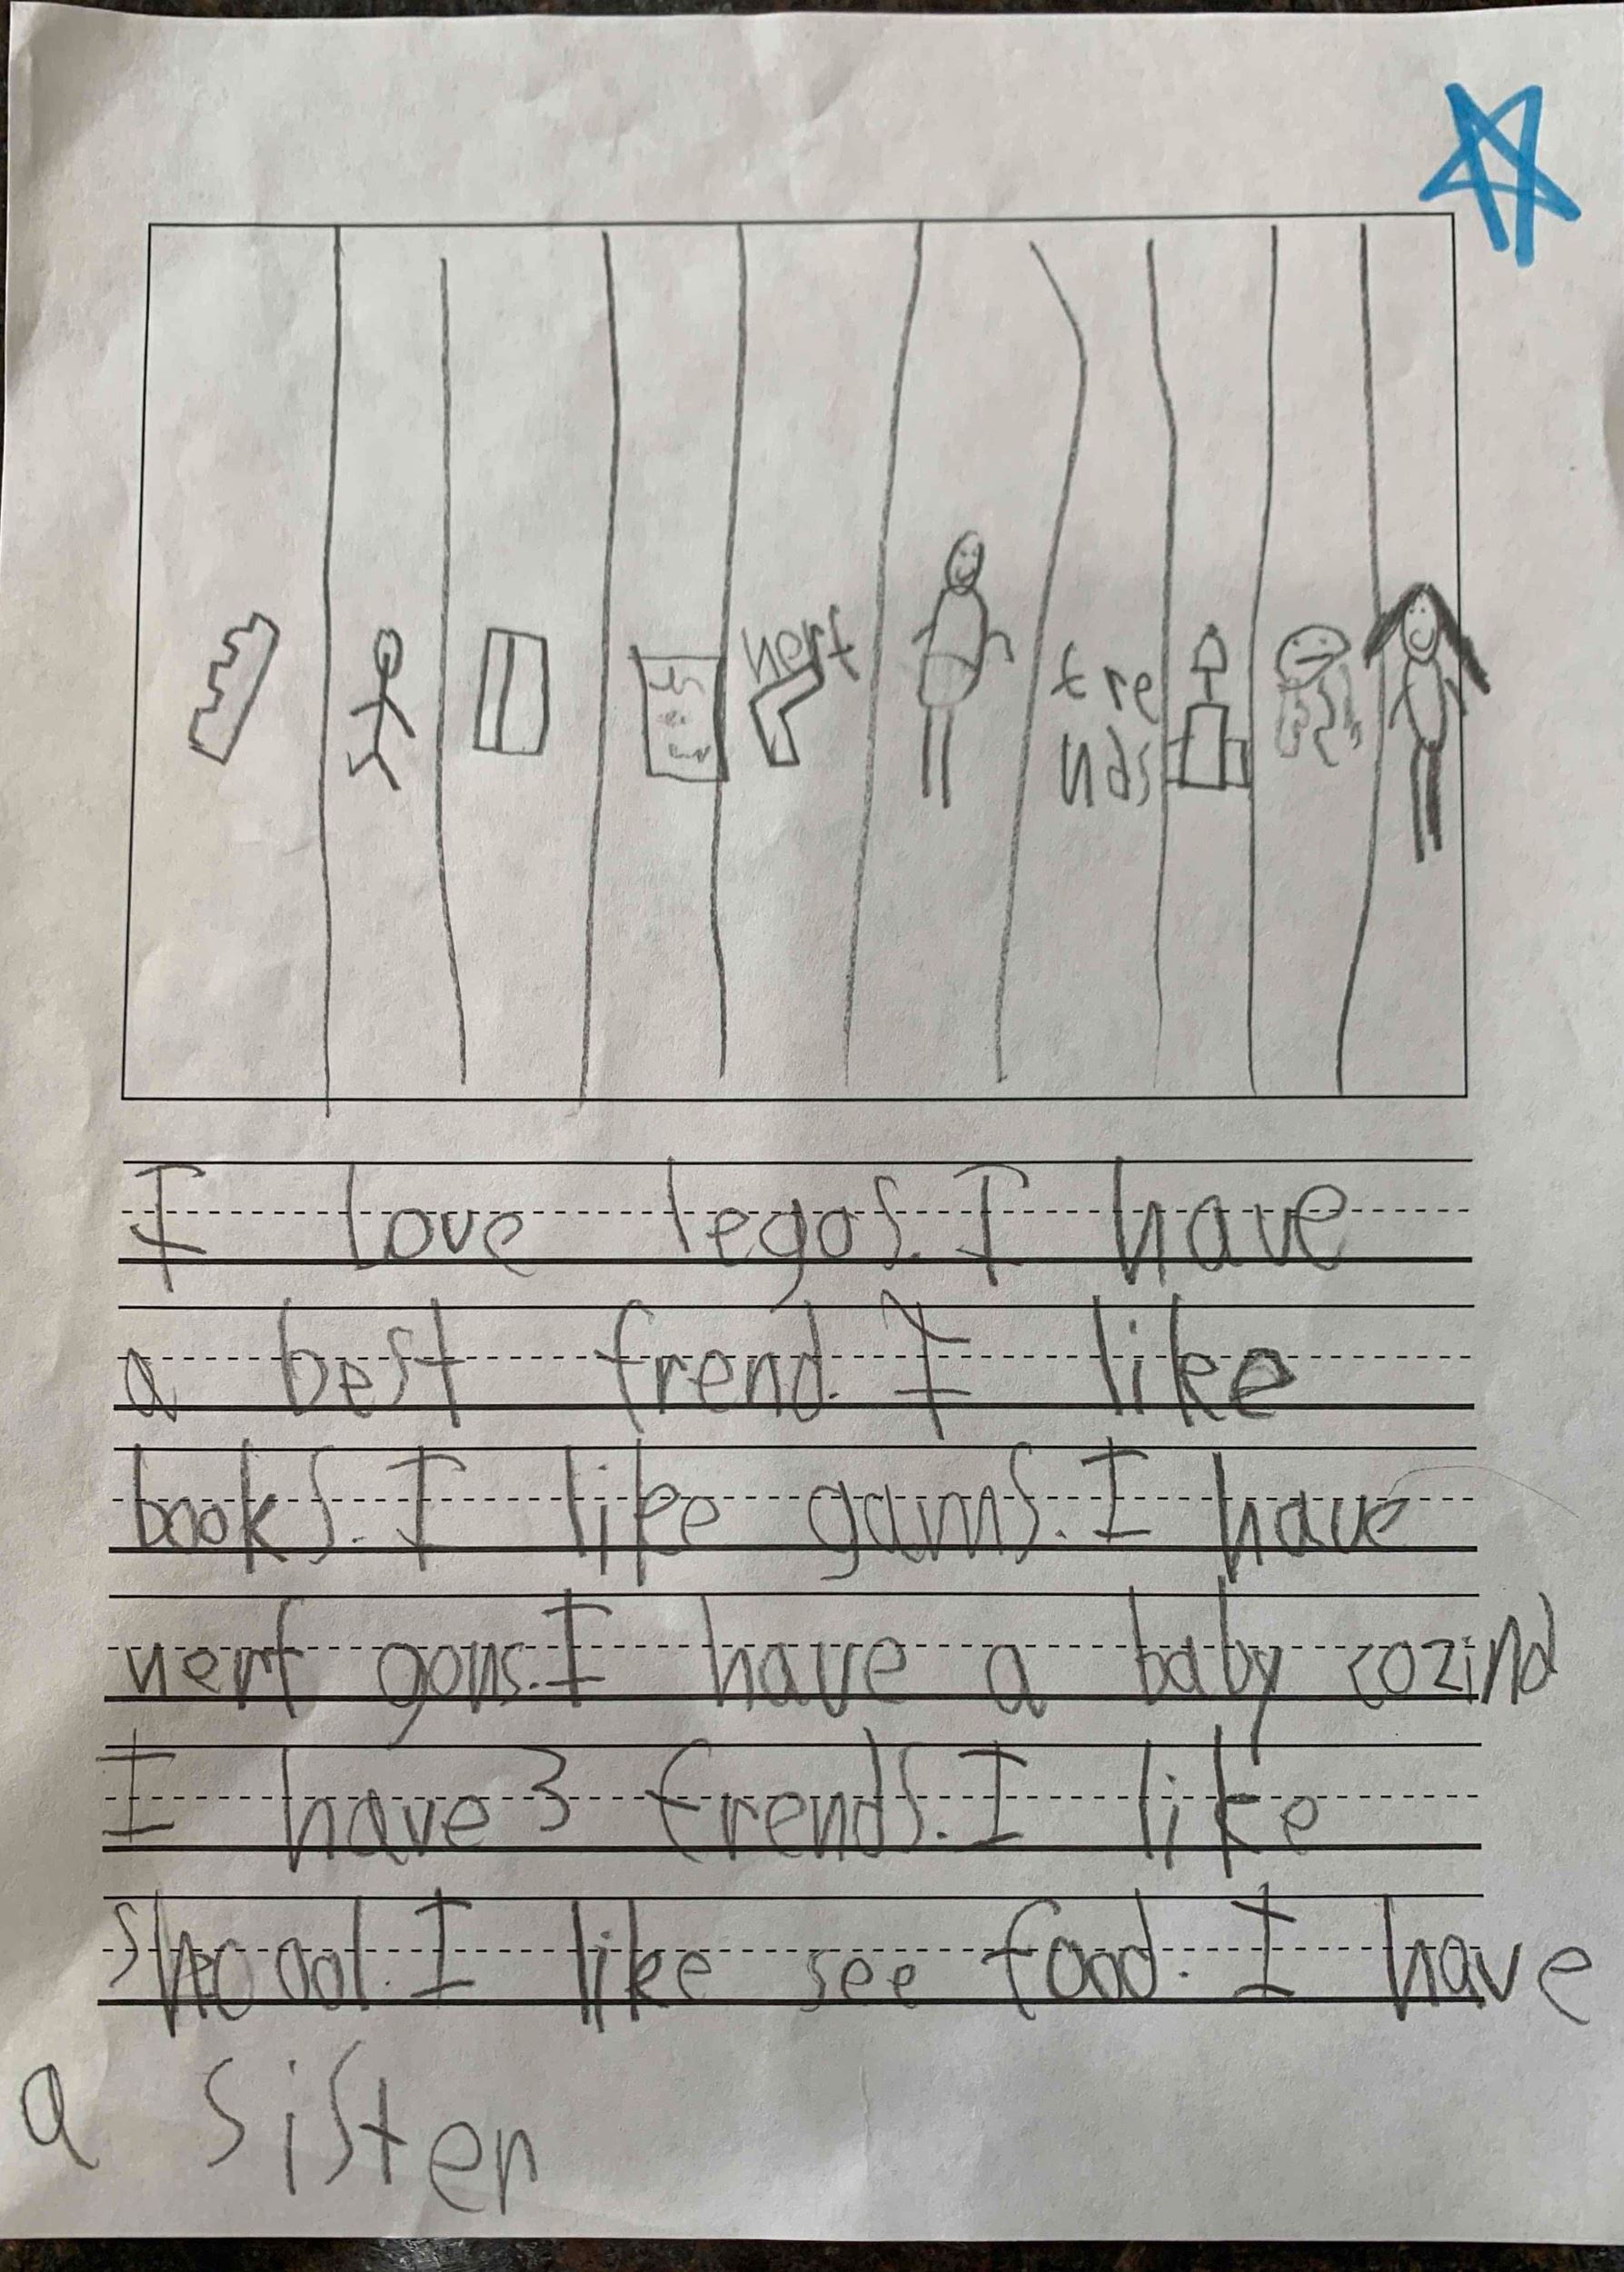 nerf
fre
nds
I love legos. I have
a best frend. I like
books. I like gams. I have
nerf gons. I have a baby cozind
I have 3 frends. I like
shcool. I like see food. I have
a sister